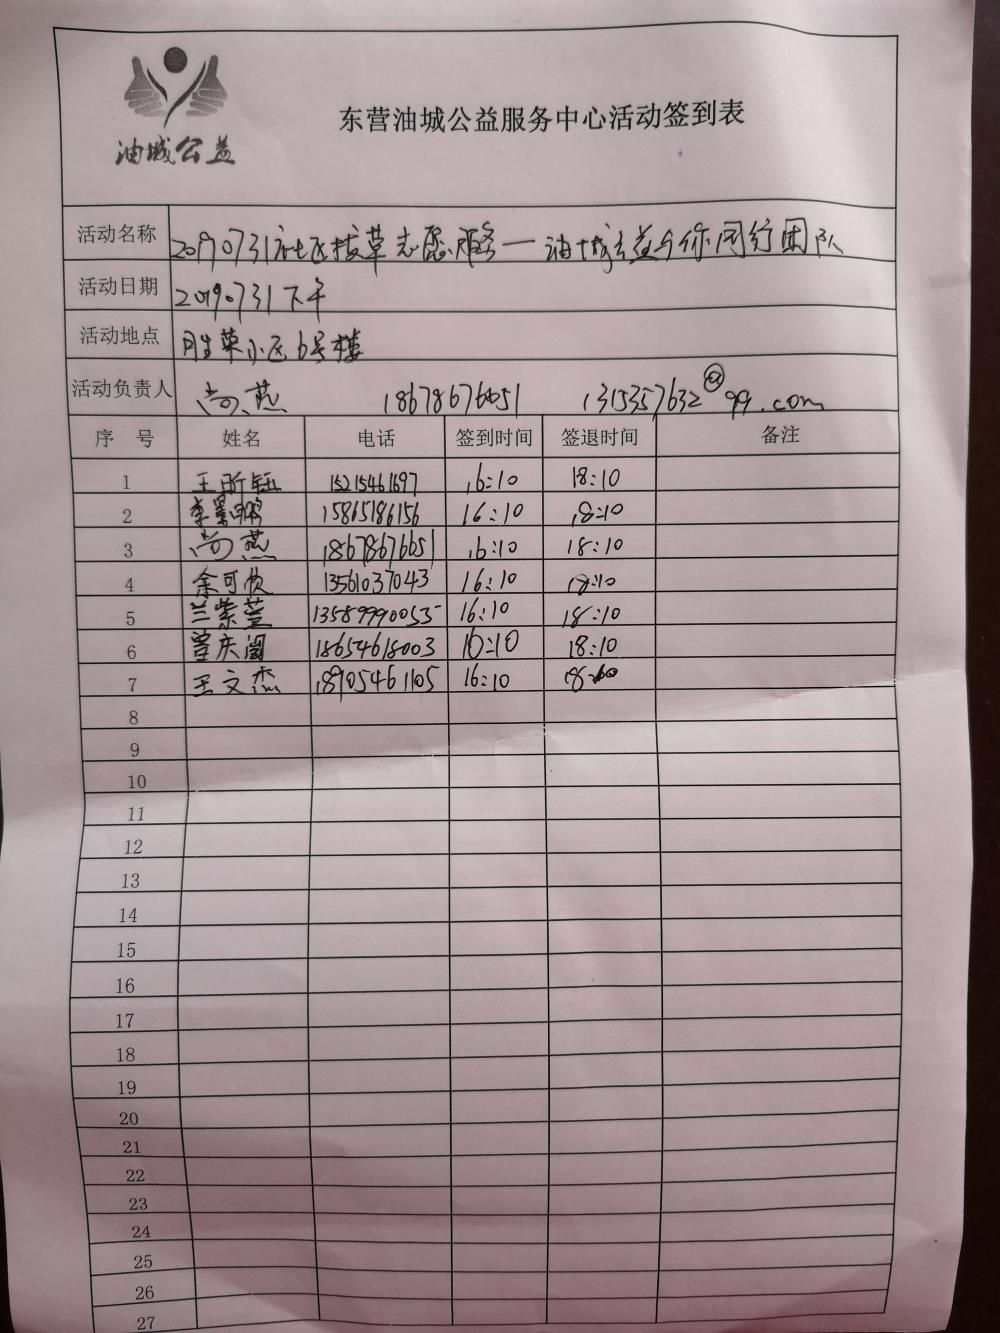 油城公益
东营油城公益服务中心活动签到表
活动名称 20190731社区拔草志愿服务—油城公益与你同行团队
活动日期 20190731下午
活动地点 胜莱小区6号楼
活动负责人 尚燕 18678676651 1315357632@qq.com
序 号 姓名 电话 签到时间 签退时间 备注
1 王昕钰 15215461697 16:10 18:10
2 李景鹏 15865186156 16:10 18:10
3 尚燕 18678676651 16:10 18:10
4 余可欣 13561037043 16:10 18:10
5 兰紫萱 13589990053 16:10 18:10
6 庆 18654618003 16:10 18:10
7 王文杰 18905461105 16:10 18:10
8
9
10
11
12
13
14
15
16
17
18
19
20
21
22
23
24
25
26
27